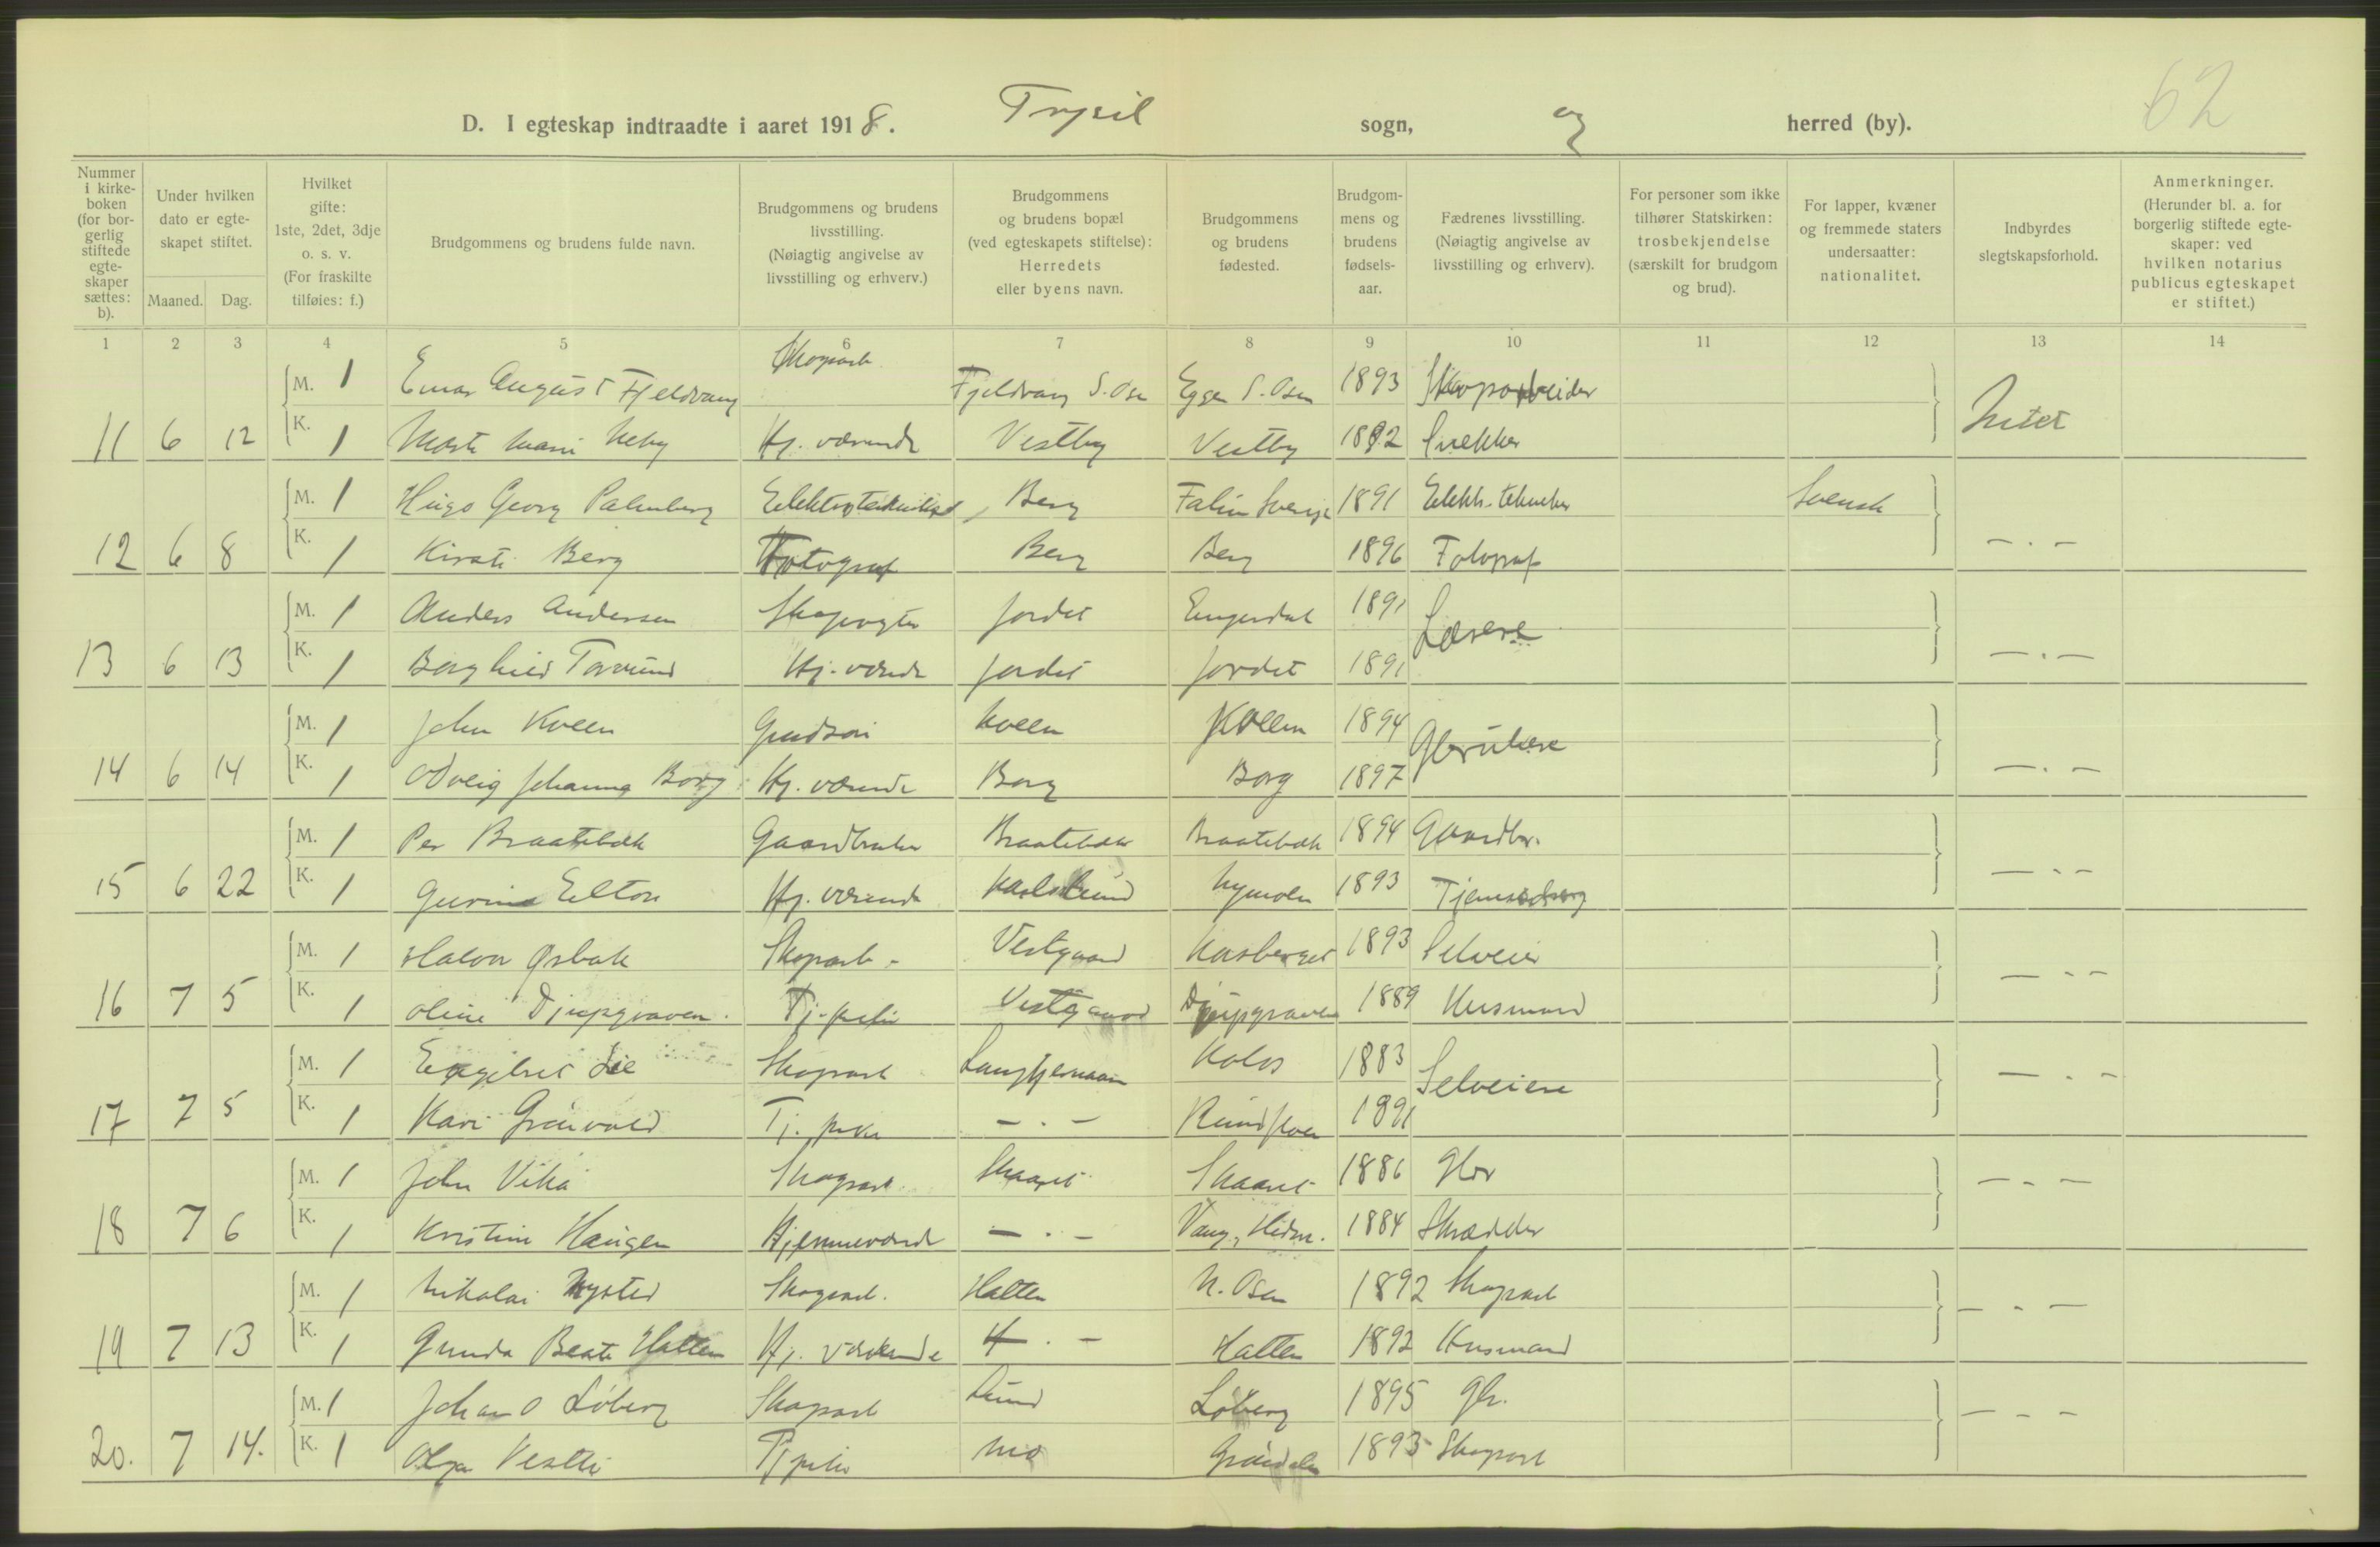 62
D. I egteskap indtraadte i aaret 1918. Trysil sogn, og herred (by).
Nummer i kirkeboken (for borgerlig stiftede egteskaper sættes: b).
Under hvilken dato er egteskapet stiftet.
Maaned. Dag.
Hvilket gifte: 1ste, 2det, 3dje o. s. v. (For fraskilte tilføies: f.)
Brudgommens og brudens fulde navn.
Brudgommens og brudens livsstilling. (Nøiagtig angivelse av livsstilling og erhverv.)
Brudgommens og brudens bopæl (ved egteskapets stiftelse): Herredets eller byens navn.
Brudgommens og brudens fødested.
Brudgommens og brudens fødselsaar.
Fædrenes livsstilling. (Nøiagtig angivelse av livsstilling og erhverv).
For personer som ikke tilhører Statskirken: trosbekjendelse (særskilt for brudgom og brud).
For lapper, kvæner og fremmede staters undersaatter: nationalitet.
Indbyrdes slegtskapsforhold.
Anmerkninger. (Herunder bl. a. for borgerlig stiftede egteskaper: ved hvilken notarius publicus egteskapet er stiftet.)
1 2 3 4 5 6 7 8 9 10 11 12 13 14
M. 1 Einar August Fjeldvang Skogarb. Fjeldvang S. Osen Eggen S. Osen 1893 Skogarbeider
11 6 12 K. 1 Marie Neby Hj. værende Vestby Vestby 1892 Snekker Intet
M. 1 Hugo Georg Palmberg Elektrotekniker Berg Falun Sverige 1891 Elektr. tekniker Svensk
12 6 8 K. 1 Kirsti Berg Fotograf Berg Berg 1896 Fotograf — . —
M. 1 Anders Andersen Skogvogter Jordet Engerdal 1891 Lærere
13 6 13 K. 1 Borghild Jordet Hj. værende Jordet 1891 — . —
M. 1 John Kveen Kveen Kveen 1894 Gbrukere
14 6 14 K. 1 Odveig Johanna Borg Hj. værende Borg Borg 1897 — . —
M. 1 Per Braatebæk Gaardbruker Braatebæk Braatebæk 1894 Gaardbr.
15 6 22 K. 1 Gurine Elton Hj. værende Karlslund Nymoen 1893 — . —
M. 1 Halvor Skogarb. Vestgaard 1893 Selveier
16 7 5 K. 1 Oline Djupgraven Tj.pike Vestgaard Djupgraven 1889 Husmand — . —
M. 1 Engebret Lie Skogarb. Kolos 1883 Selveiere
17 7 5 K. 1 Kari Grønvold Tj. pike — . — Rundfloen 1891 — . —
M. 1 John Vika Skogarb. Skaaret Skaaret 1886 Gbr
18 7 6 K. 1 Kristine Haugen Hjemmeværende — . — Vang, Hedm. 1884 Skrædder — . —
M. 1 Nikolai Nysted Skogarb. Halten N. Osen 1892 Skogarb
19 7 13 K. 1 Gunda Beate Halten Hj. værende — . — Halten 1892 Husmand — . —
M. 1 Johan O Løberg Skogarb Lund Løberg 1895 Gbr.
20. 7 14. K. 1 Olga Vestli Tj pike Mo Grøndalen 1893 Skogarb — . —